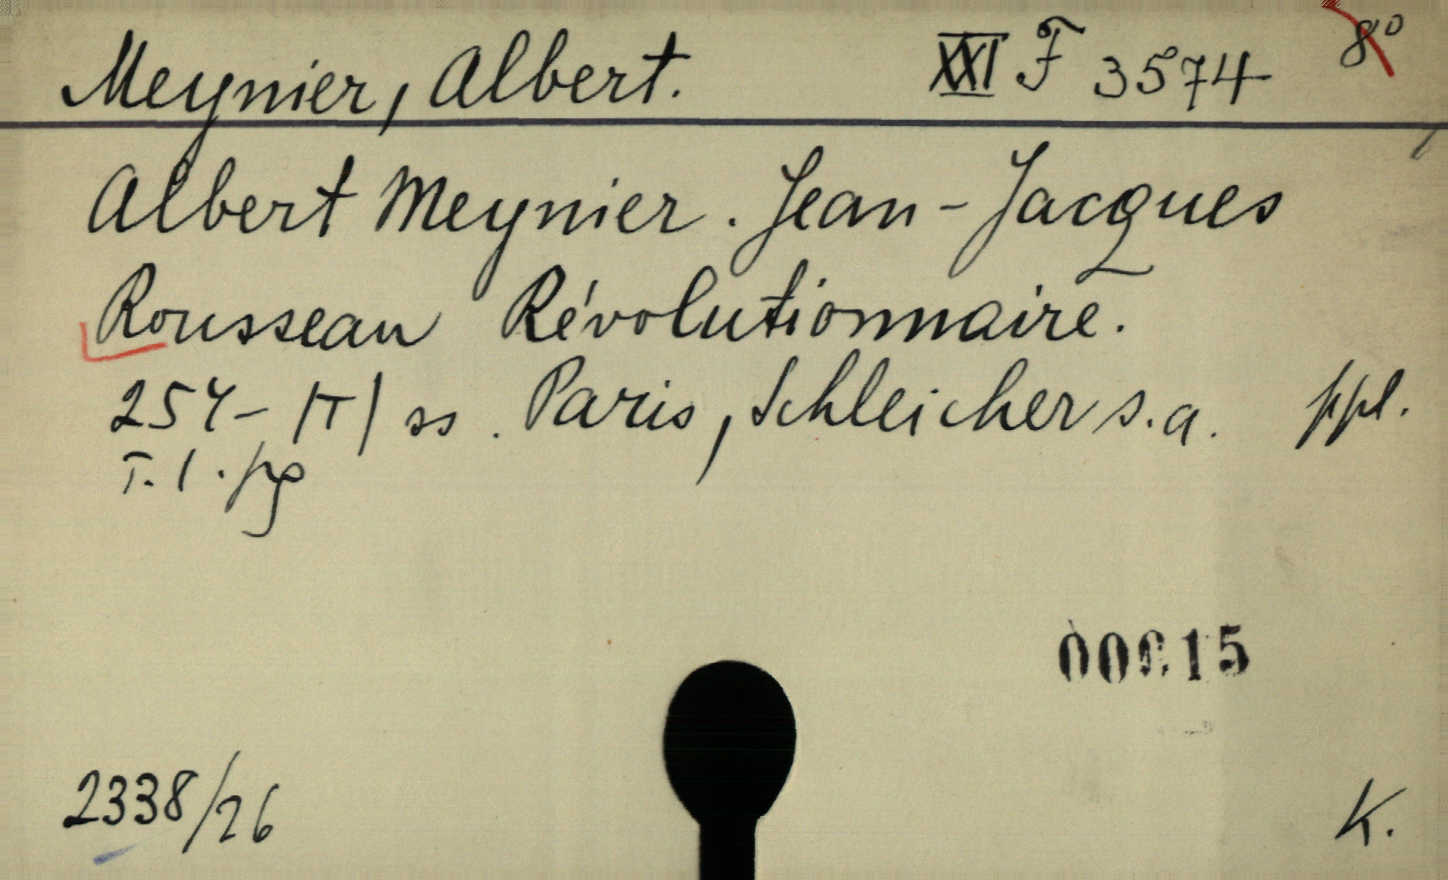 Meynier, Albert. XXI F 3574 8°
Albert Meynier. Jean-Jacques
Rousseau Révolutionnaire.
254-|T| ss. Paris, Schleicher s.a. ppl.
T. 1.
2338/26 K.